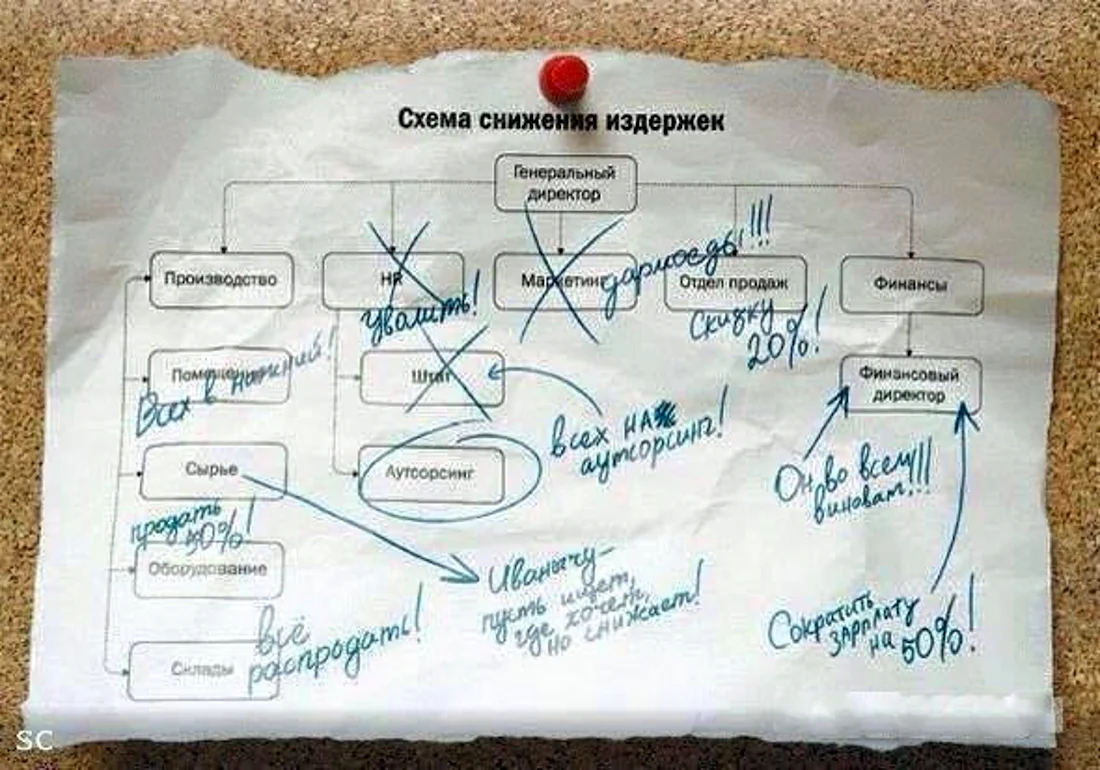 Схема снижения издержек
Генеральный
директор
Производство
HR
Маркетинг
дармоеды!!!
Отдел продаж
Финансы
уволить!
Скидку
20%!
Помещения
Всех в нижний!
Штат
Финансовый
директор
всех НА
аутсорсинг!
Сырье
Аутсорсинг
Он во всем
виноват!!!
продать
50%!
Оборудование
Иванычу-
пусть ищет,
где хочет,
но снижает!
Сократить
зарплату
на 50%!
Склады
всё
распродать!
SC